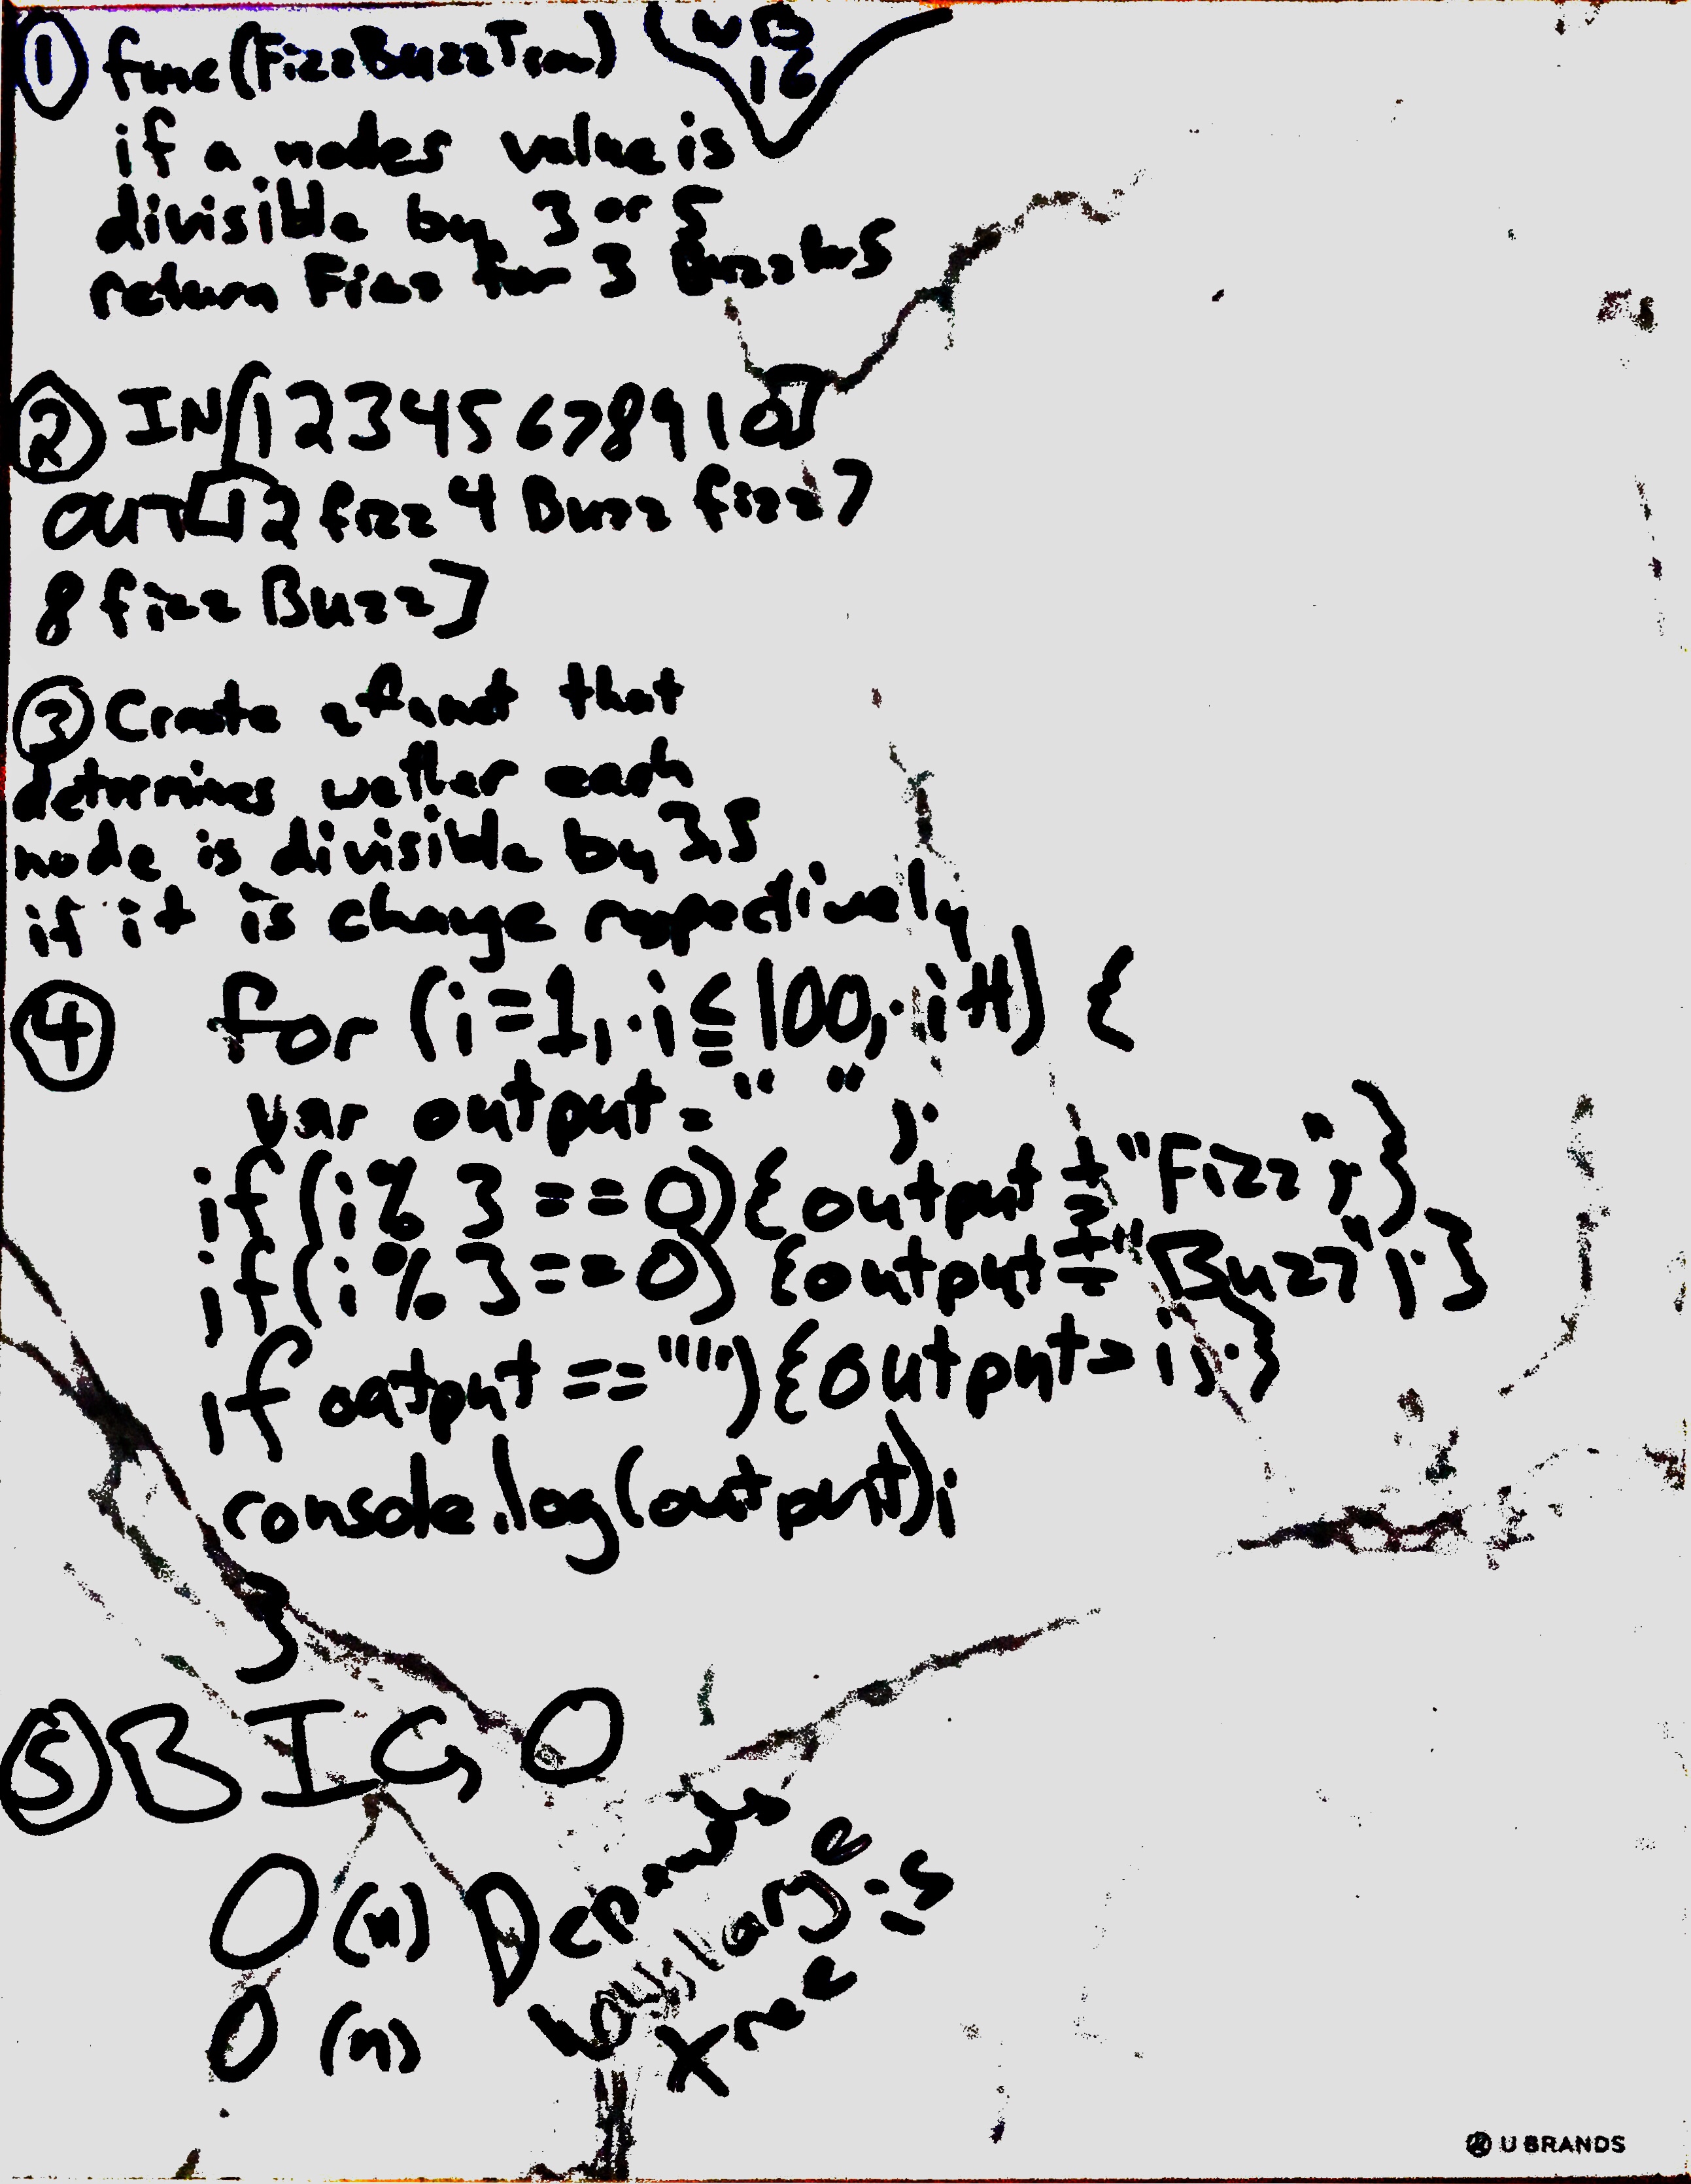 ① func(FizzBuzzTree) WB
16
if a nodes value is
divisible by 3 or 5
return Fizz for 3 Buzz for 5
② IN[1 2 3 4 5 6 7 8 9 10]
OUT[1 2 fizz 4 Buzz fizz 7
8 fizz Buzz]
③ Create that
determines wether each
node is divisible by 3,5
if it is change respectively
④ for (i=1; i≤100; i++) {
var output = " ";
if (i % 3 == 0) {output += "Fizz";}
if (i % 3 == 0) {output += "Buzz";}
if output == "") {output = i;}
console.log(output);
}
⑤ BIG O
O (n) Depends
how large is
tree
O (n)
U BRANDS